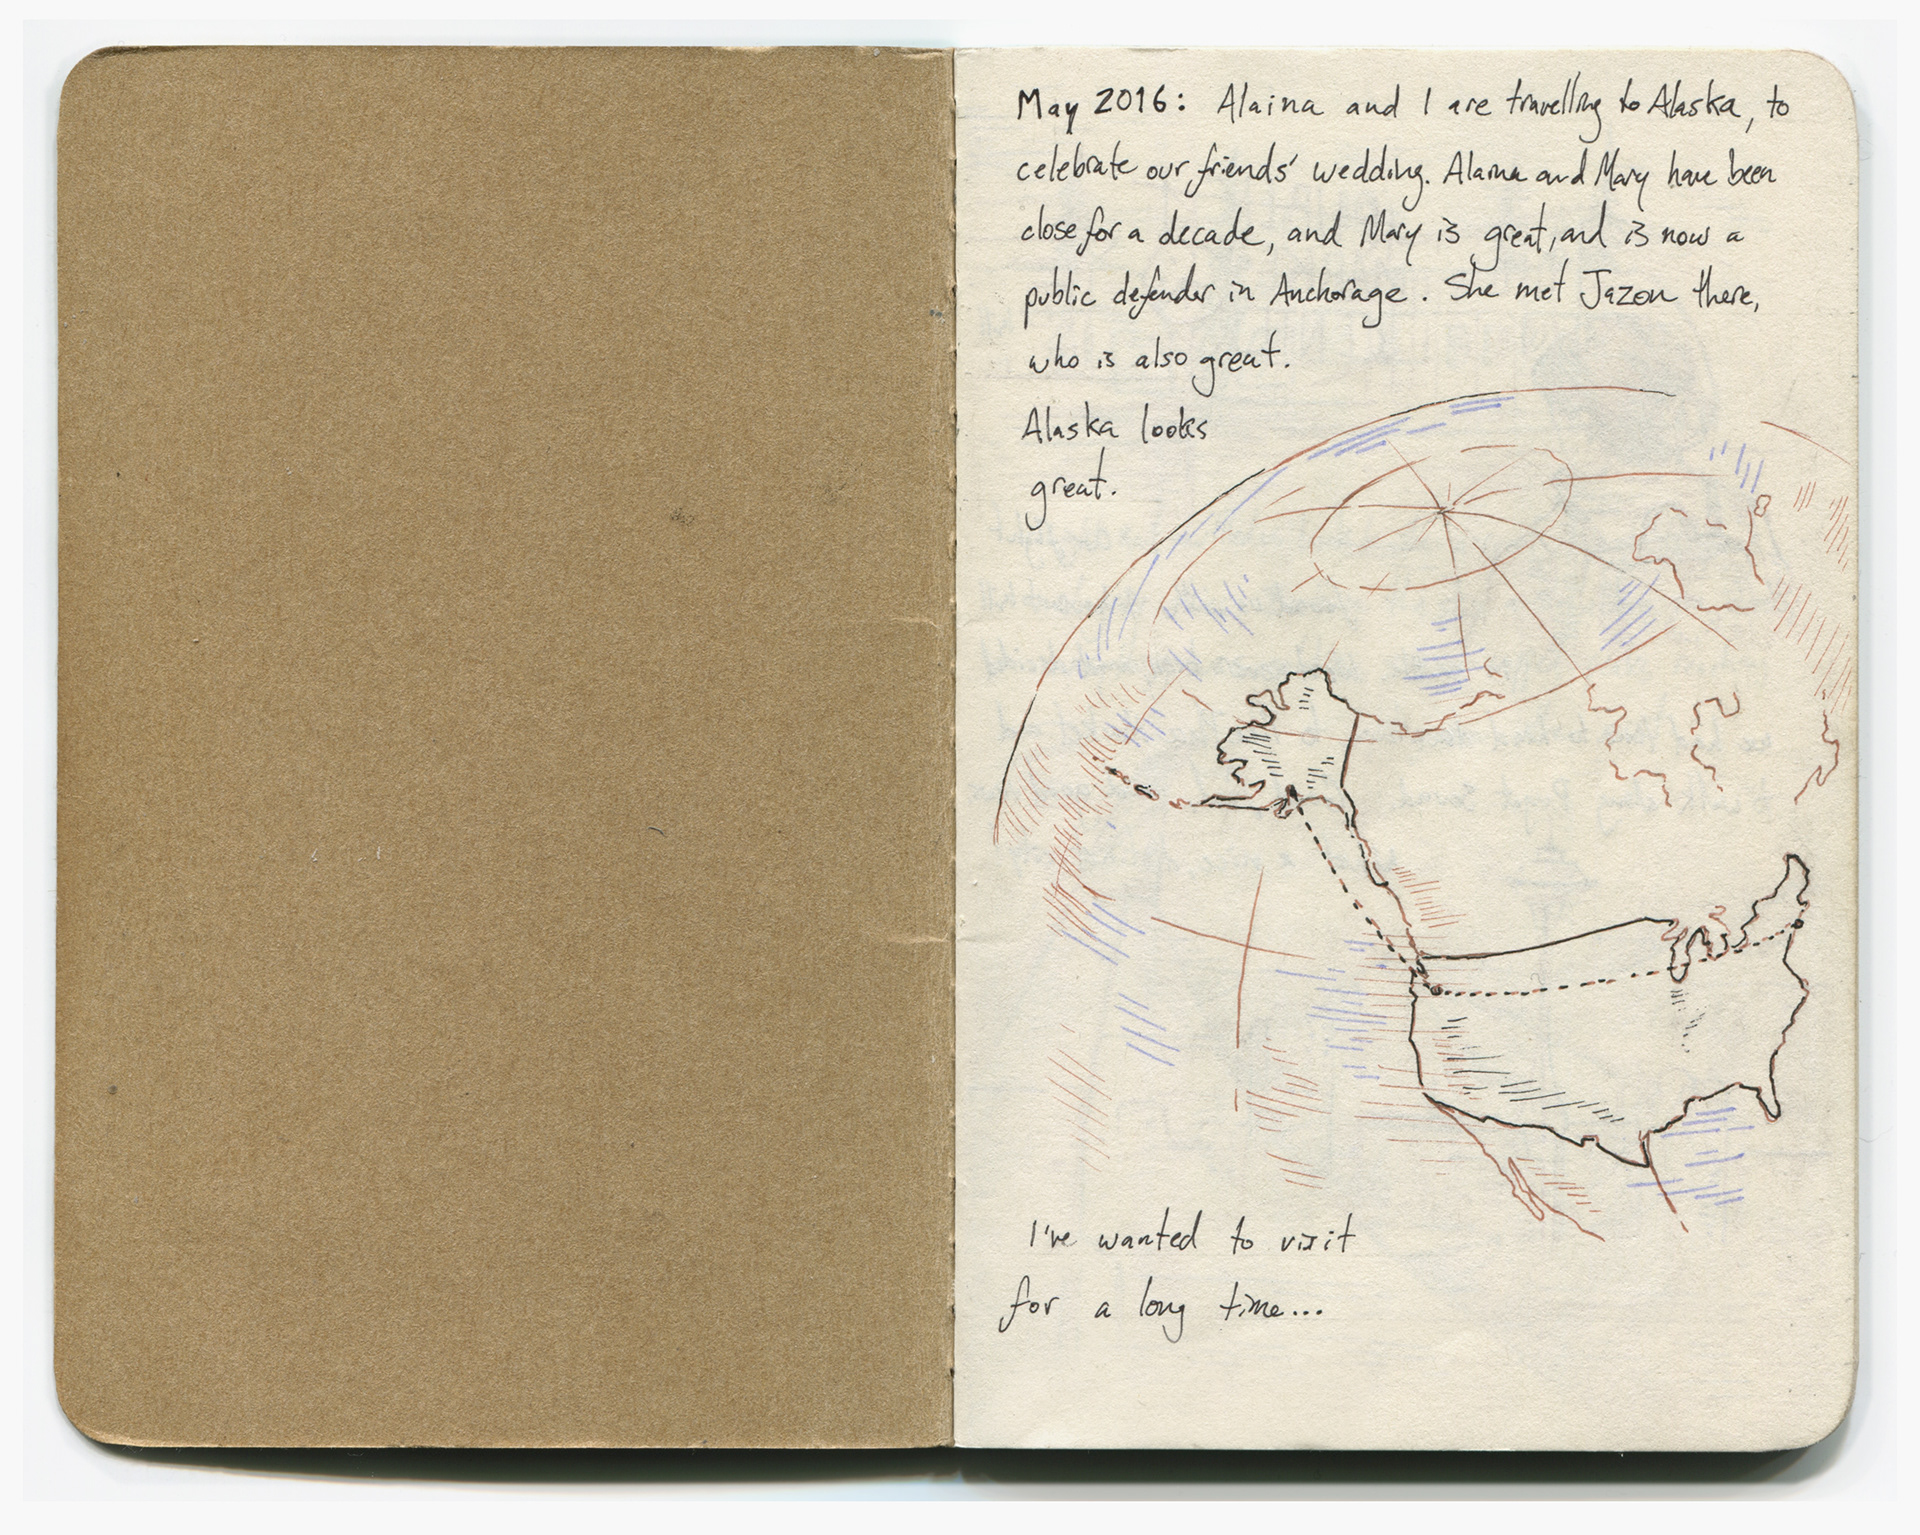 May 2016: Alaina and I are travelling to Alaska, to
celebrate our friends' wedding. Alaina and Mary have been
close for a decade, and Mary is great, and is now a
public defender in Anchorage. She met Jazon there,
who is also great.
Alaska looks
great.
I've wanted to visit
for a long time...